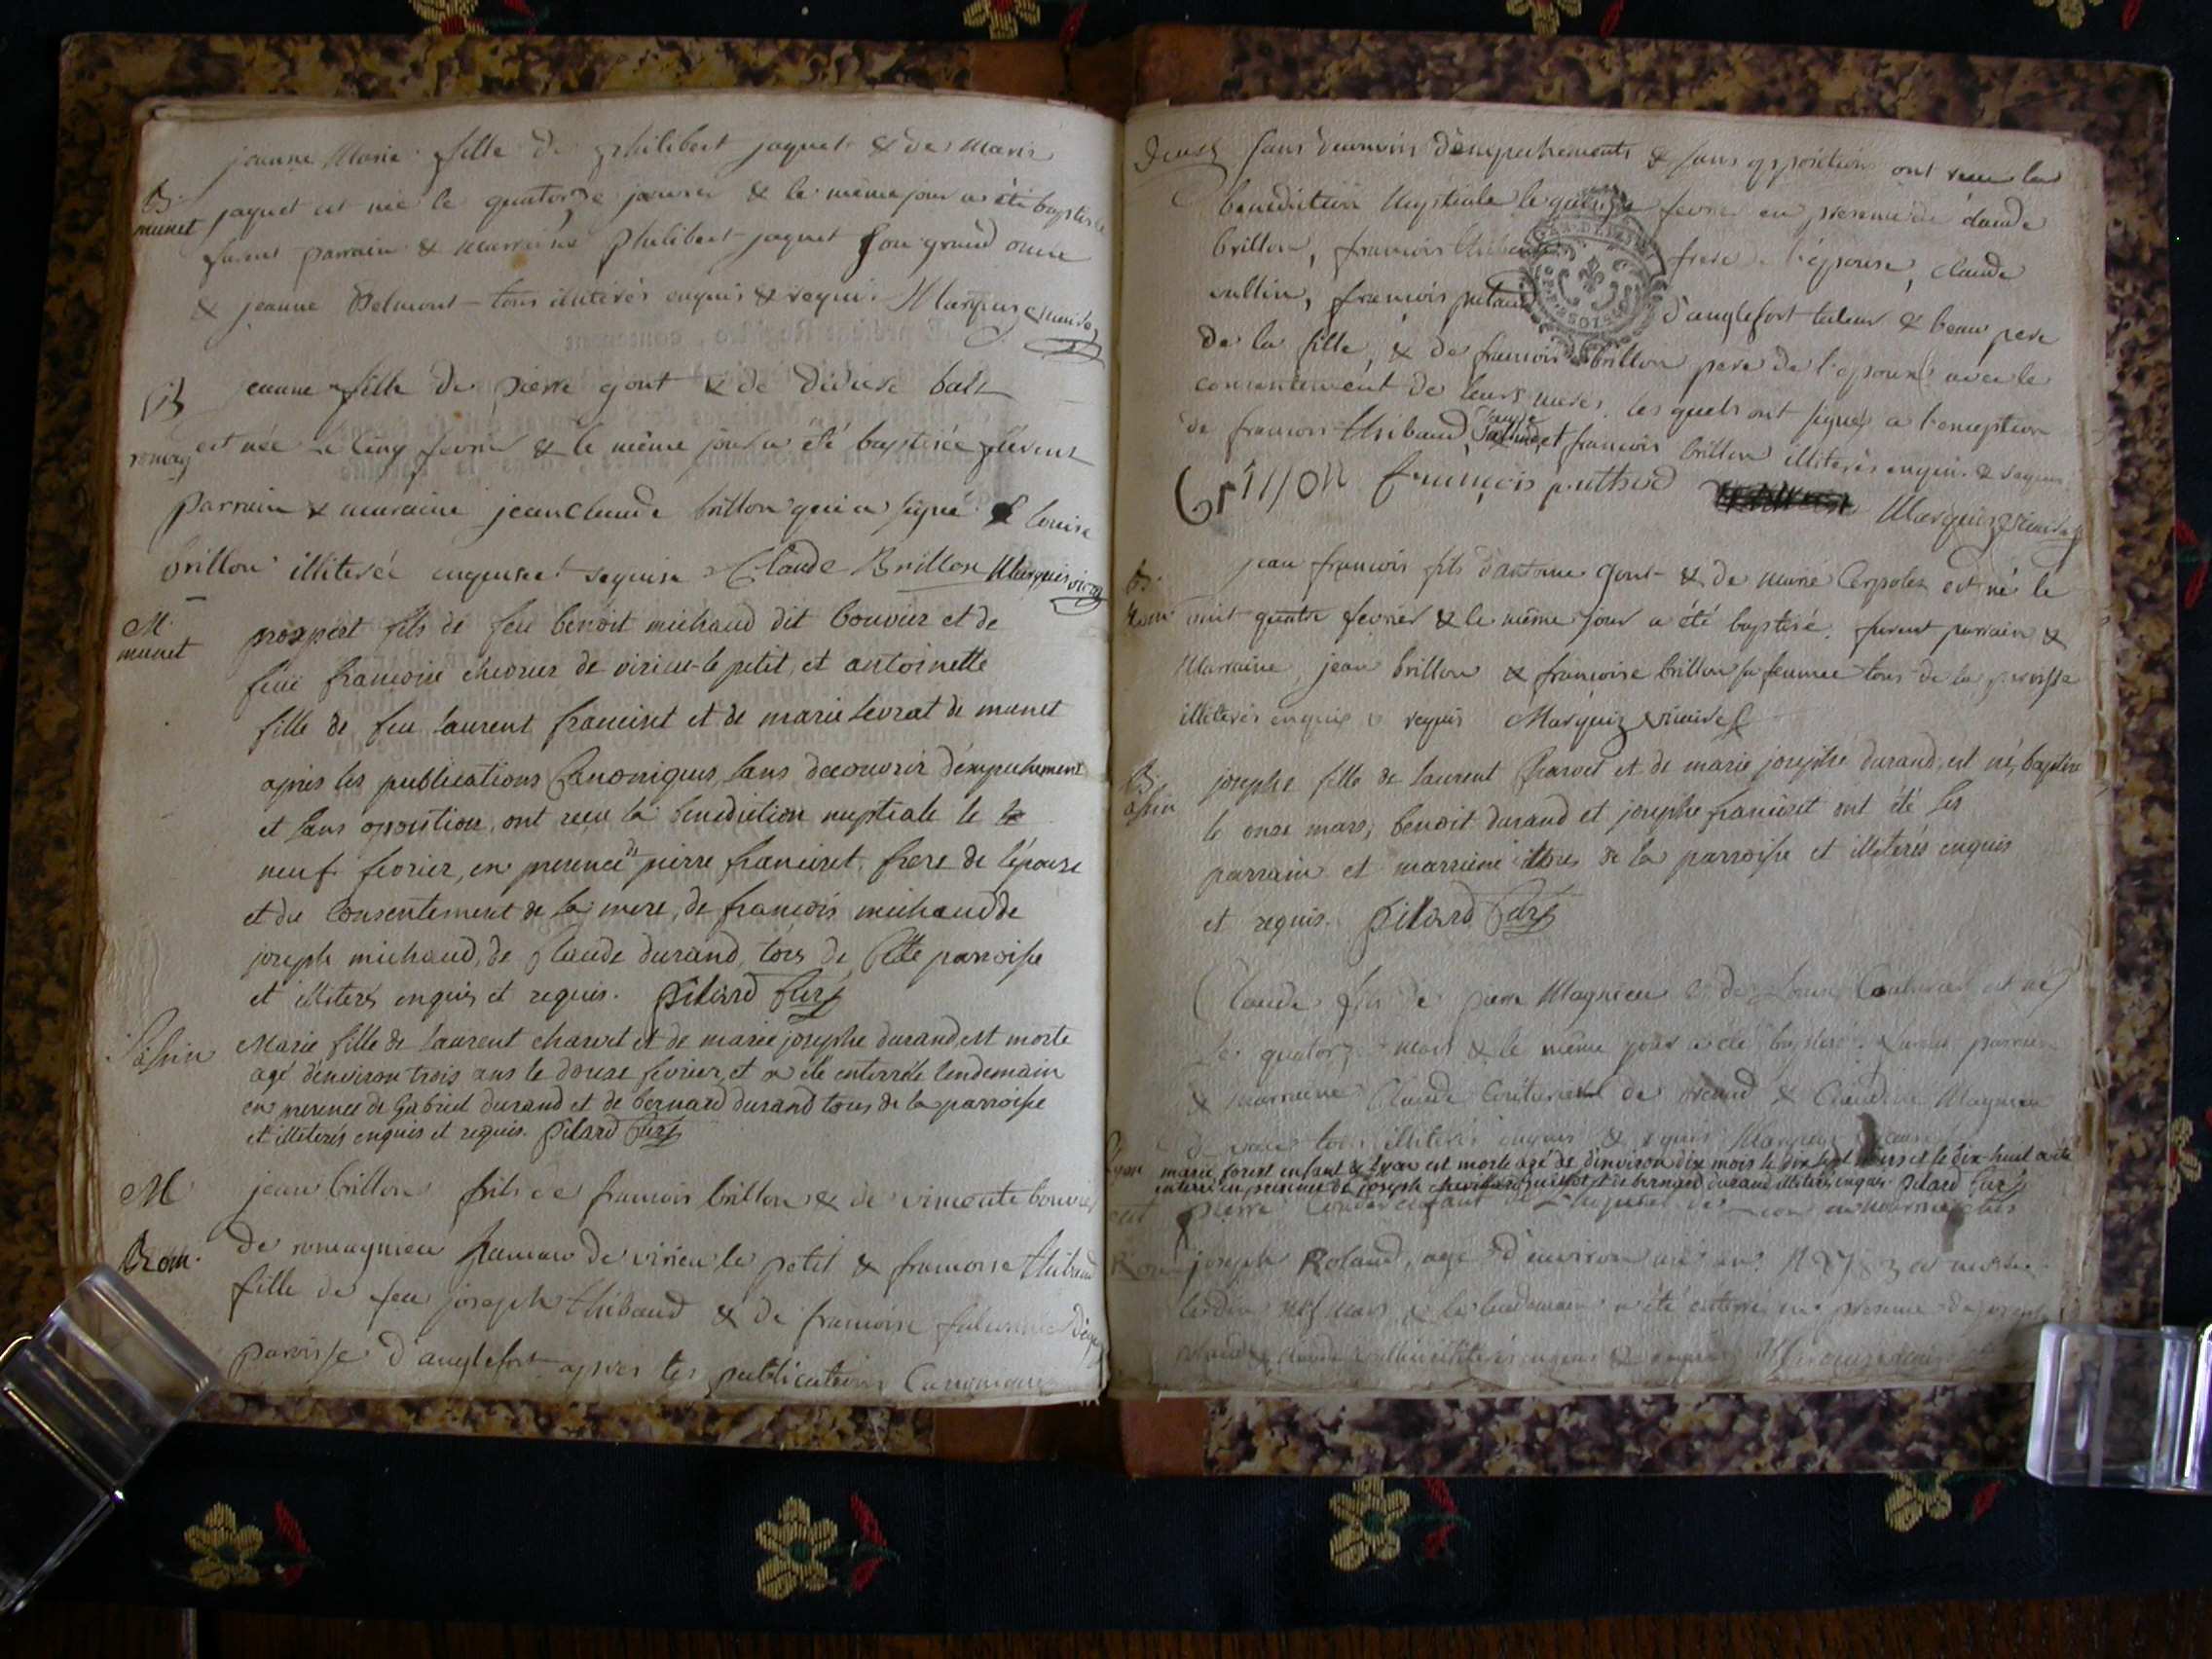 jeanne Marie fille de philibert jaquet & de Marie
B.
munet
jaquet est née le quatorze janvier & le même jour a été baptisée
furent parrain & marraine philibert jaquet son grand oncle
& jeanne Belmont tous illiterés enquis & requis Marquis vicaire
B
romag
jeanne fille de pierre gont & de
est née le cinq fevrier & le même jour a été baptisée furent
parrain & maraine jean Claude brillon qui a signé & louise
brillon illiterée enquise & requise Claude Brillon Marquis vic
M.
munet
prospert fils de feu benoit michaud dit bouvier et de
feue françoise chevrier de virieu-le petit, et antoinette
fille de feu laurent francinet et de marie levrat de munet
apres les publications Canoniques, sans decouvrir d'empechement
et sans opposition, ont recu la benediction nuptiale le
neuf fevrier, en presence de pierre francinet, frere de l'épouse
et du Consentement de la mere, de françois michaud de
joseph michaud, de Claude durand, tous de Cette parroisse
et illiterés enquis et requis. pitard Curé
S
assin
Marie fille de laurent charvet et de marie josephe durand est morte
agé d'environ trois ans le douze fevrier, et a été enterré le lendemain
en presence de Gabriel durand et de bernard durand tous de la parroisse
et illiterés enquis et requis. pitard Curé
M
Rom.
jean brillon fils de françois brillon & de vincente bouvier
de romagnieu hameau de virieu le petit & francoise thibaud
fille de feu joseph thibaud & de francoise
paroisse d'anglefort apres les publications Canoniques
Deux
sans decouvrir d'empechements & sans oppositions ont recu la
benediction Nuptiale le quinze fevrier en presence de claude
brillon, francois thibaud frere de l'épouse, claude
vullin, francois putaud d'anglefort tuteur & beau pere
de la fille, & de francois brillon pere de l'epoux avec le
consentement de leurs meres. les quels ont signé a l'exception
de francois thibaud, claude vullin, et francois brillon illiterés enquis & requis
Brillon françois puthod Marquis vicaire
B.
Rom.
jean francois fils d'antoine gont & de marie Cerpolet est né le
vint quatre fevrier & le même jour a été baptisé. furent parrain &
Marraine, jean brillon & françoise brillon sa femme tous de la paroisse
illiterés enquis & requis Marquis vicaire
B.
assin
josephe fille de laurent Charvet et de marie josephe durand, est né, baptisé
le onze mars, benoit durand et josephe francinet ont été les
parrain et marraine tous de la parroisse et illiterés enquis
et requis. pitard Curé
Claude fils de pierre Magnieu & de Louise Couturier est né
le quatorze mars & le même jour a été baptisé. furent parrain
& marraine Claude Couturier de & Claudine Magnieu
de tous illiterés enquis & requis Marquis vicaire
Lyon
marie forest enfant de Lyon est morte agé de d'environ dix mois le dix sept mars et le dix huit a été
enterré en presence de joseph et de bernard durand illiterés enquis. pitard Curé
pierre enfant de l'hopital de Lyon en nourrice chés
Rom
joseph Roland, agé d'environ un an est mort
le dix neuf mars & le lendemain a été enterré en presence de joseph
roland & claude vullin illiterés enquis & requis Marquis vicaire